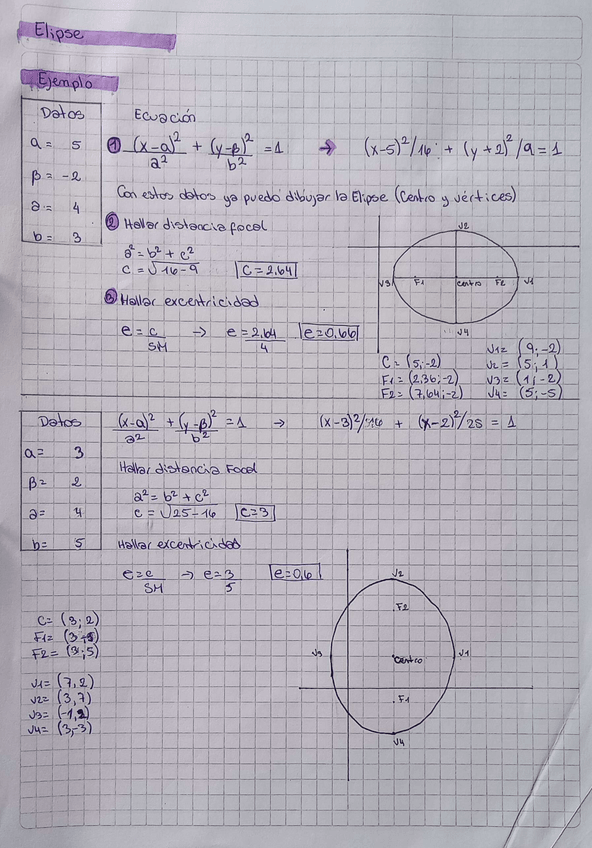 Elipse
Ejemplo
Datos
α = 5
β = -2
a = 4
b = 3
Ecuación
① (x-α)²/a² + (y-β)²/b² = 1 → (x-5)²/16 + (y+2)²/9 = 1
Con estos datos ya puedo dibujar la Elipse (Centro y vértices)
② Hallar distancia focal
a² = b² + c²
c = √16-9 C = 2,64
③ Hallar excentricidad
e = c/SM → e = 2,64/4 e = 0,66
V2
V3 F1 Centro F2 V1
V4
C = (5;-2)
F1 = (2,36;-2)
F2 = (7,64;-2)
V1 = (9;-2)
V2 = (5;1)
V3 = (1;-2)
V4 = (5;-5)
Datos
α = 3
β = 2
a = 4
b = 5
(x-α)²/a² + (y-β)²/b² = 1 → (x-3)²/16 + (x-2)²/25 = 1
Hallar distancia Focal
a² = b² + c²
c = √25-16 C = 3
Hallar excentricidad
e = c/SM → e = 3/5 e = 0,6
C = (3;2)
F2 = (3;5)
V1 = (7,2)
V2 = (3,7)
V3 = (-1,2)
V4 = (3,-3)
V2
F2
V3 Centro V1
F1
V4